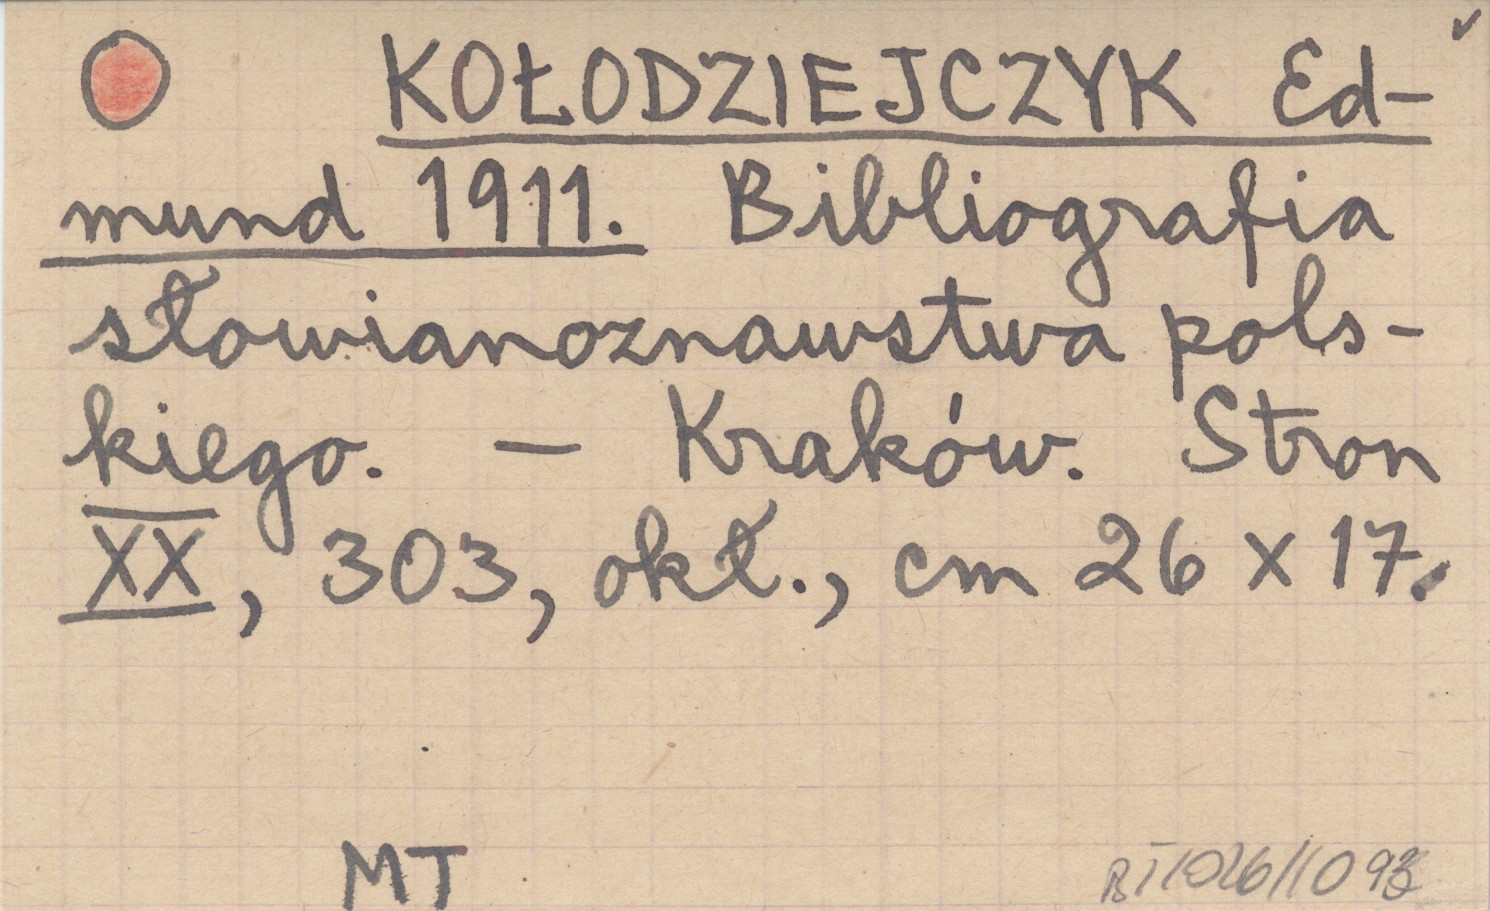 KOŁODZIEJCZYK Ed-
mund 1911. Bibliografia
słowianoznawstwa pols-
kiego. — Kraków. Stron
XX, 303, okł., cm 26 x 17.
MT